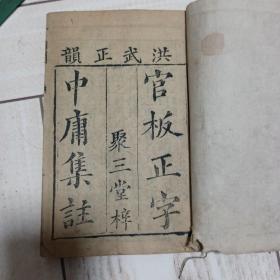 洪武正韻
官板正字
聚三堂梓
中庸集註